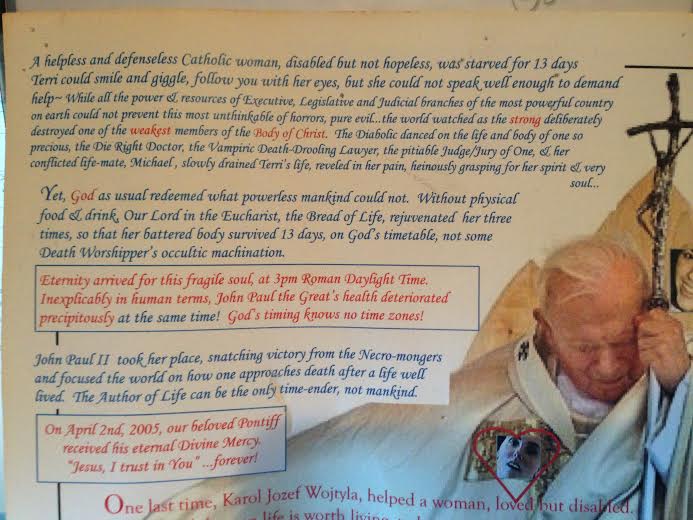 A helpless and defenseless Catholic woman, disabled but not hopeless, was starved for 13 days
Terri could smile and giggle, follow you with her eyes, but she could not speak well enough to demand
help~ While all the power & resources of Executive, Legislative and Judicial branches of the most powerful country
on earth could not prevent this most unthinkable of horrors, pure evil...the world watched as the strong deliberately
destroyed one of the weakest members of the Body of Christ. The Diabolic danced on the life and body of one so
precious, the Die Right Doctor, the Vampiric Death-Drooling Lawyer, the pitiable Judge/Jury of One, & her
conflicted life-mate, Michael , slowly drained Terri's life, reveled in her pain, heinously grasping for her spirit & very
soul...
Yet, God as usual redeemed what powerless mankind could not. Without physical
food & drink, Our Lord in the Eucharist, the Bread of Life, rejuvenated her three
times, so that her battered body survived 13 days, on God's timetable, not some
Death Worshipper's occultic machination.
Eternity arrived for this fragile soul, at 3pm Roman Daylight Time.
Inexplicably in human terms, John Paul the Great's health deteriorated
precipitously at the same time! God's timing knows no time zones!
John Paul II took her place, snatching victory from the Necro-mongers
and focused the world on how one approaches death after a life well
lived. The Author of Life can be the only time-ender, not mankind.
On April 2nd, 2005, our beloved Pontiff
received his eternal Divine Mercy.
"Jesus, I trust in You" ...forever!
One last time, Karol Jozef Wojtyla, helped a woman, loved but disabled.
life is worth living